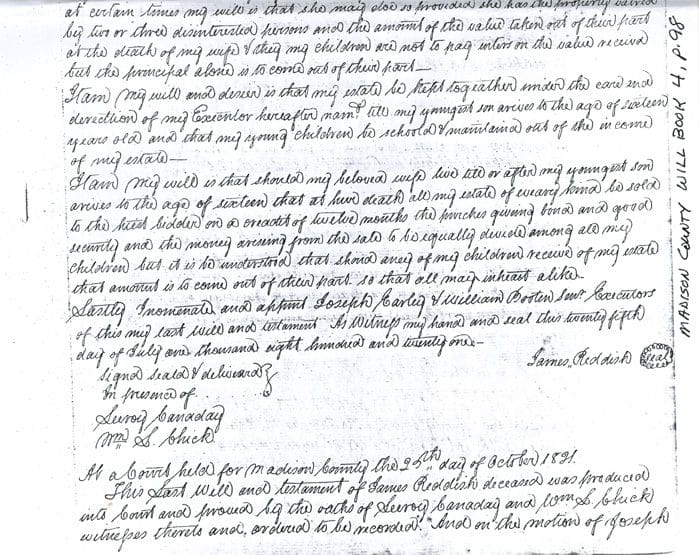 at certain times my will is that she may else so provided she has the property valued
by two or three disinterested persons and the amount of the value taken out of their part
at the death of my wife & they my children are not to pay inters on the value received
but the principal alone is to come out of their part—
Itam My will and desier is that my estate be kept together under the care and
derection of my Executor hereafter namd till my youngest son arives to the age of sixteen
years old and that my young children be schoold & maintaind out of the income
of my estate—
Itam My will is that should my beloved wife live till or after my youngest son
arives to the age of sixteen that at her death all my estate of every kind be sold
to the hiest bidder on a creadit of twelve months the purches giving bond and good
security and the money arising from the sale to be equally divide among all my
children but it is be understood that should aney of my children receive of my estate
that amount is to come out of their part so that all may inheart alike—
Lastly I nomenate and appint Joseph Earley & William Booten Senr Executors
of this my last Will and testament As Witness my hand and seal this twenty fifth
day of July one thousand eight hundred and twenty one—
James Reddish seal
Signd seald & deliverd
In presence of
Leroy Canaday
Wm S. Chick
At a Court held for Madison County the 25th day of October 1821.
This Last Will and testament of James Reddish deceased was produced
into Court and proved by the oaths of Leroy Canaday and Wm S. Chick
witnesses thereto and ordered to be recorded. And on the motion of Joseph
MADISON COUNTY WILL BOOK 4, P. 98